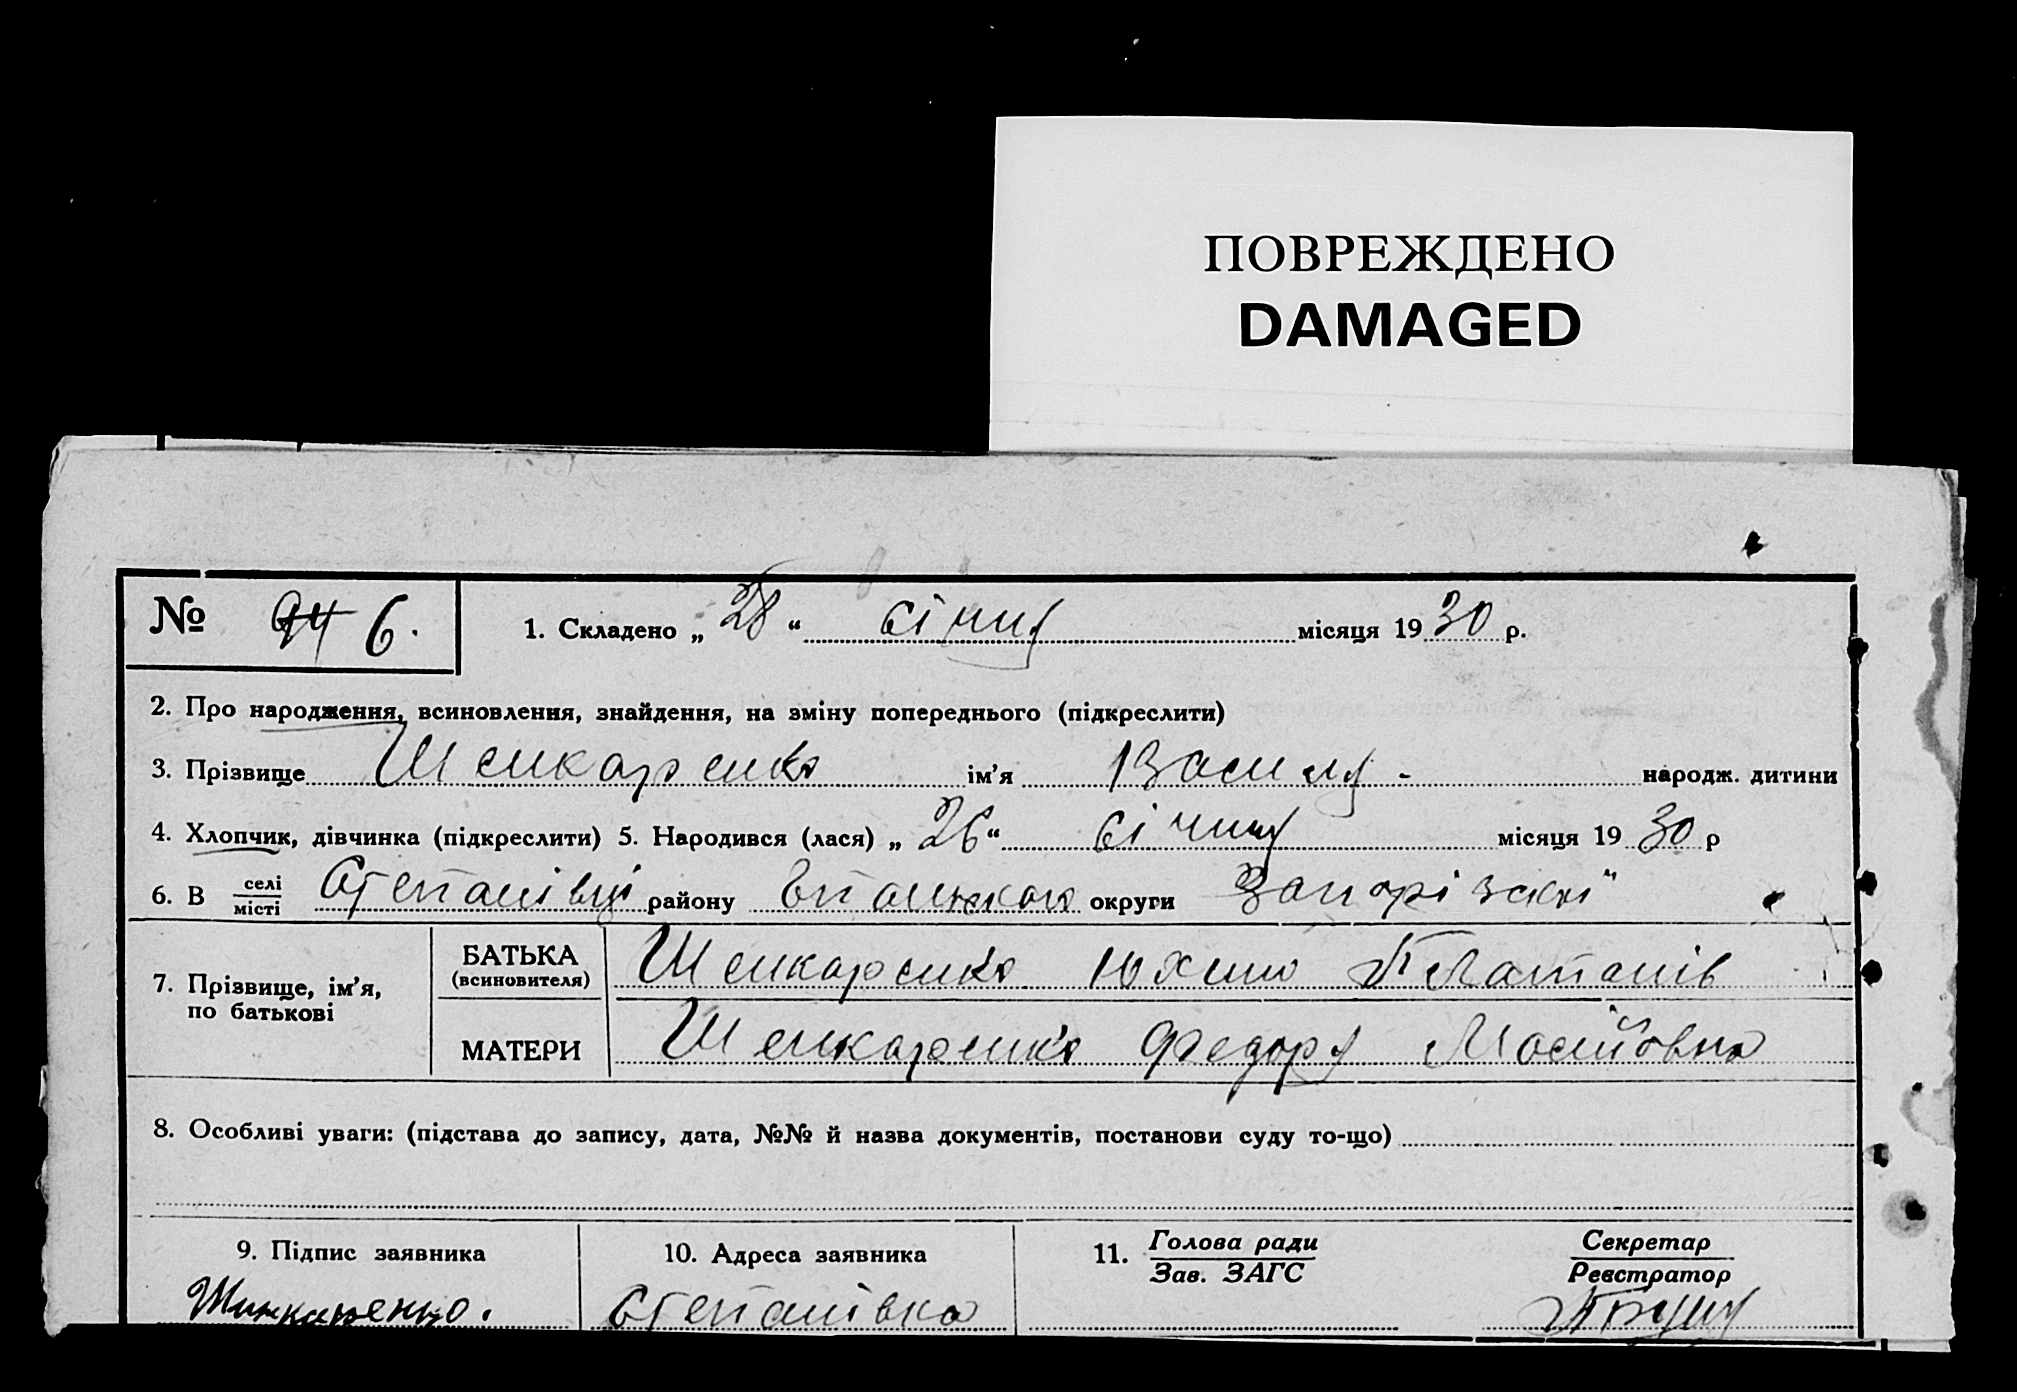 ПОВРЕЖДЕНО
DAMAGED
№ 94 6. 1. Складено „ 28 “ січня місяця 19 30 р.
2. Про народження, всиновлення, знайдення, на зміну попереднього (підкреслити)
3. Прізвище Шенкаренко ім’я Василя - народж. дитини
4. Хлопчик, дівчинка (підкреслити) 5. Народився (лася) „ 26 “ січня місяця 19 30 р
6. В селі місті Степанівці району округи Запорізкої
7. Прізвище, ім’я, по батькові
БАТЬКА (всиновителя) Шенкаренко Юхим Платонів
МАТЕРИ Шенкаренко Федора Мосійовна
8. Особливі уваги: (підстава до запису, дата, №№ й назва документів, постанови суду то-що)
9. Підпис заявника 10. Адреса заявника 11. Голова ради Секретар
Зав. ЗАГС Реєстратор
Шинкаренко. Степанівка